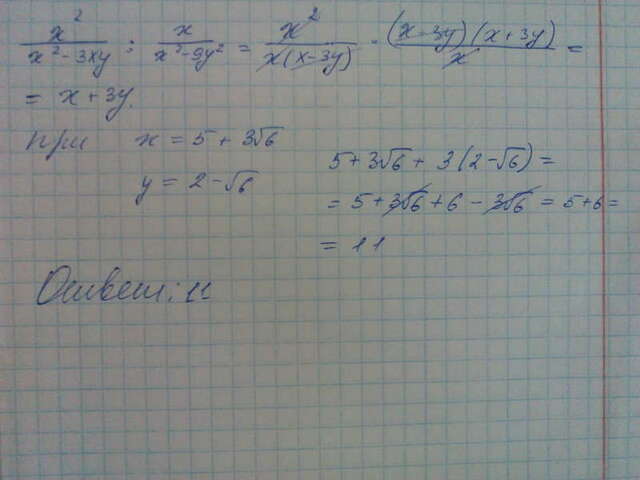 x²/(x² - 3xy) : x/(x² - 9y²) = x²/(x(x - 3y)) · (x - 3y)(x + 3y)/x =
= x + 3y.
при x = 5 + 3√6
y = 2 - √6
5 + 3√6 + 3(2 - √6) =
= 5 + 3√6 + 6 - 3√6 = 5 + 6 =
= 11
Ответ: 11